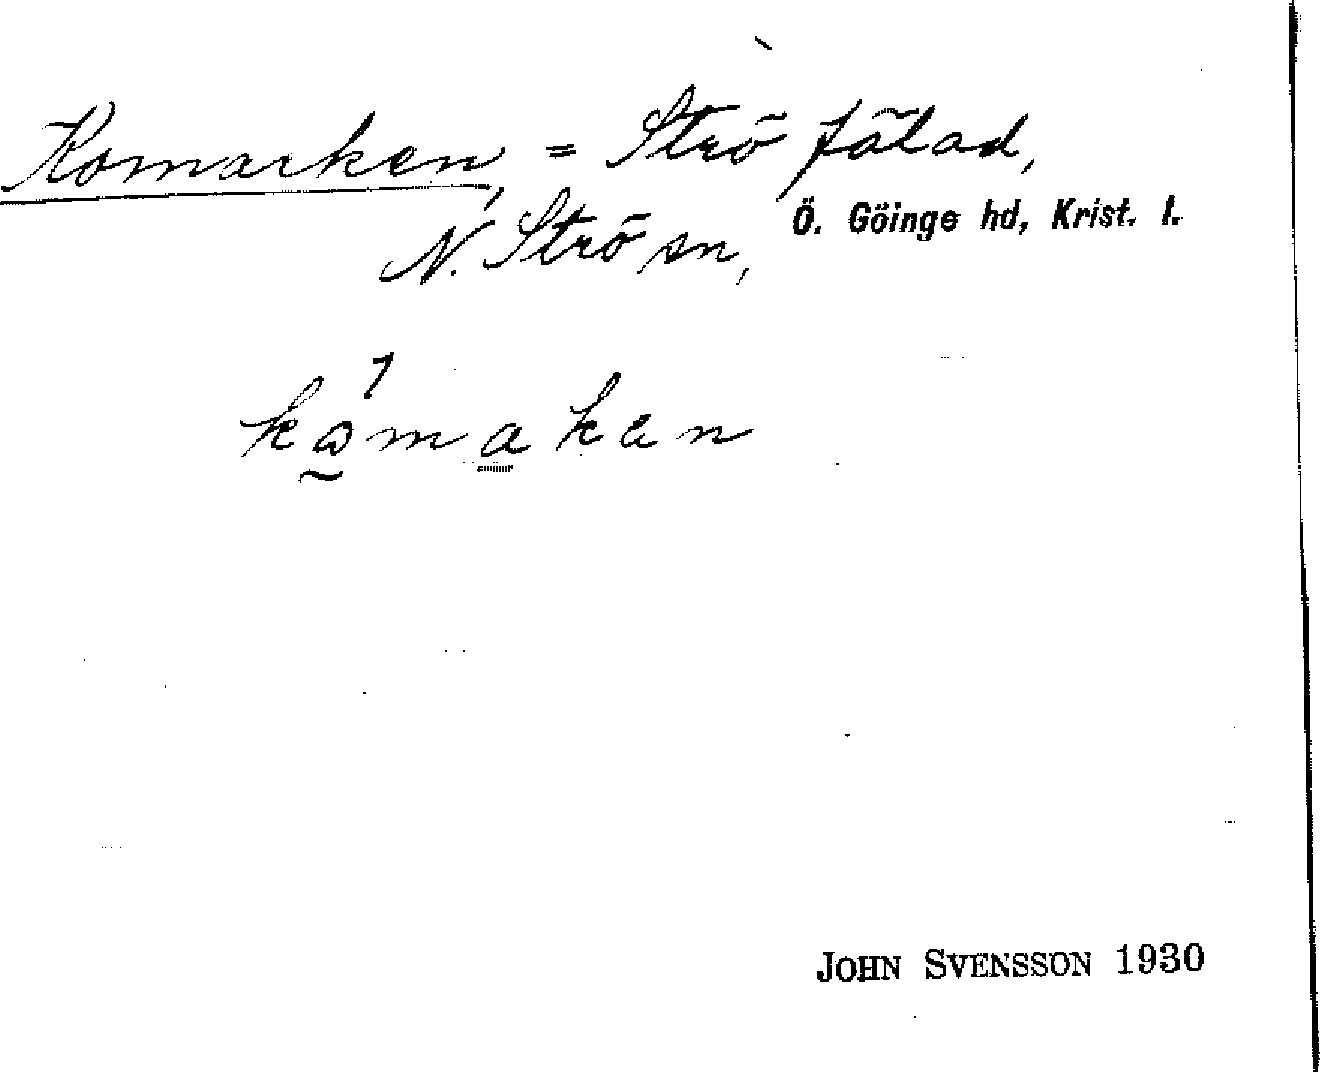 Komarken, = Strö fälad,
N. Strö sn, Ö. Göinge hd, Krist. l.
JOHN SVENSSON 1930